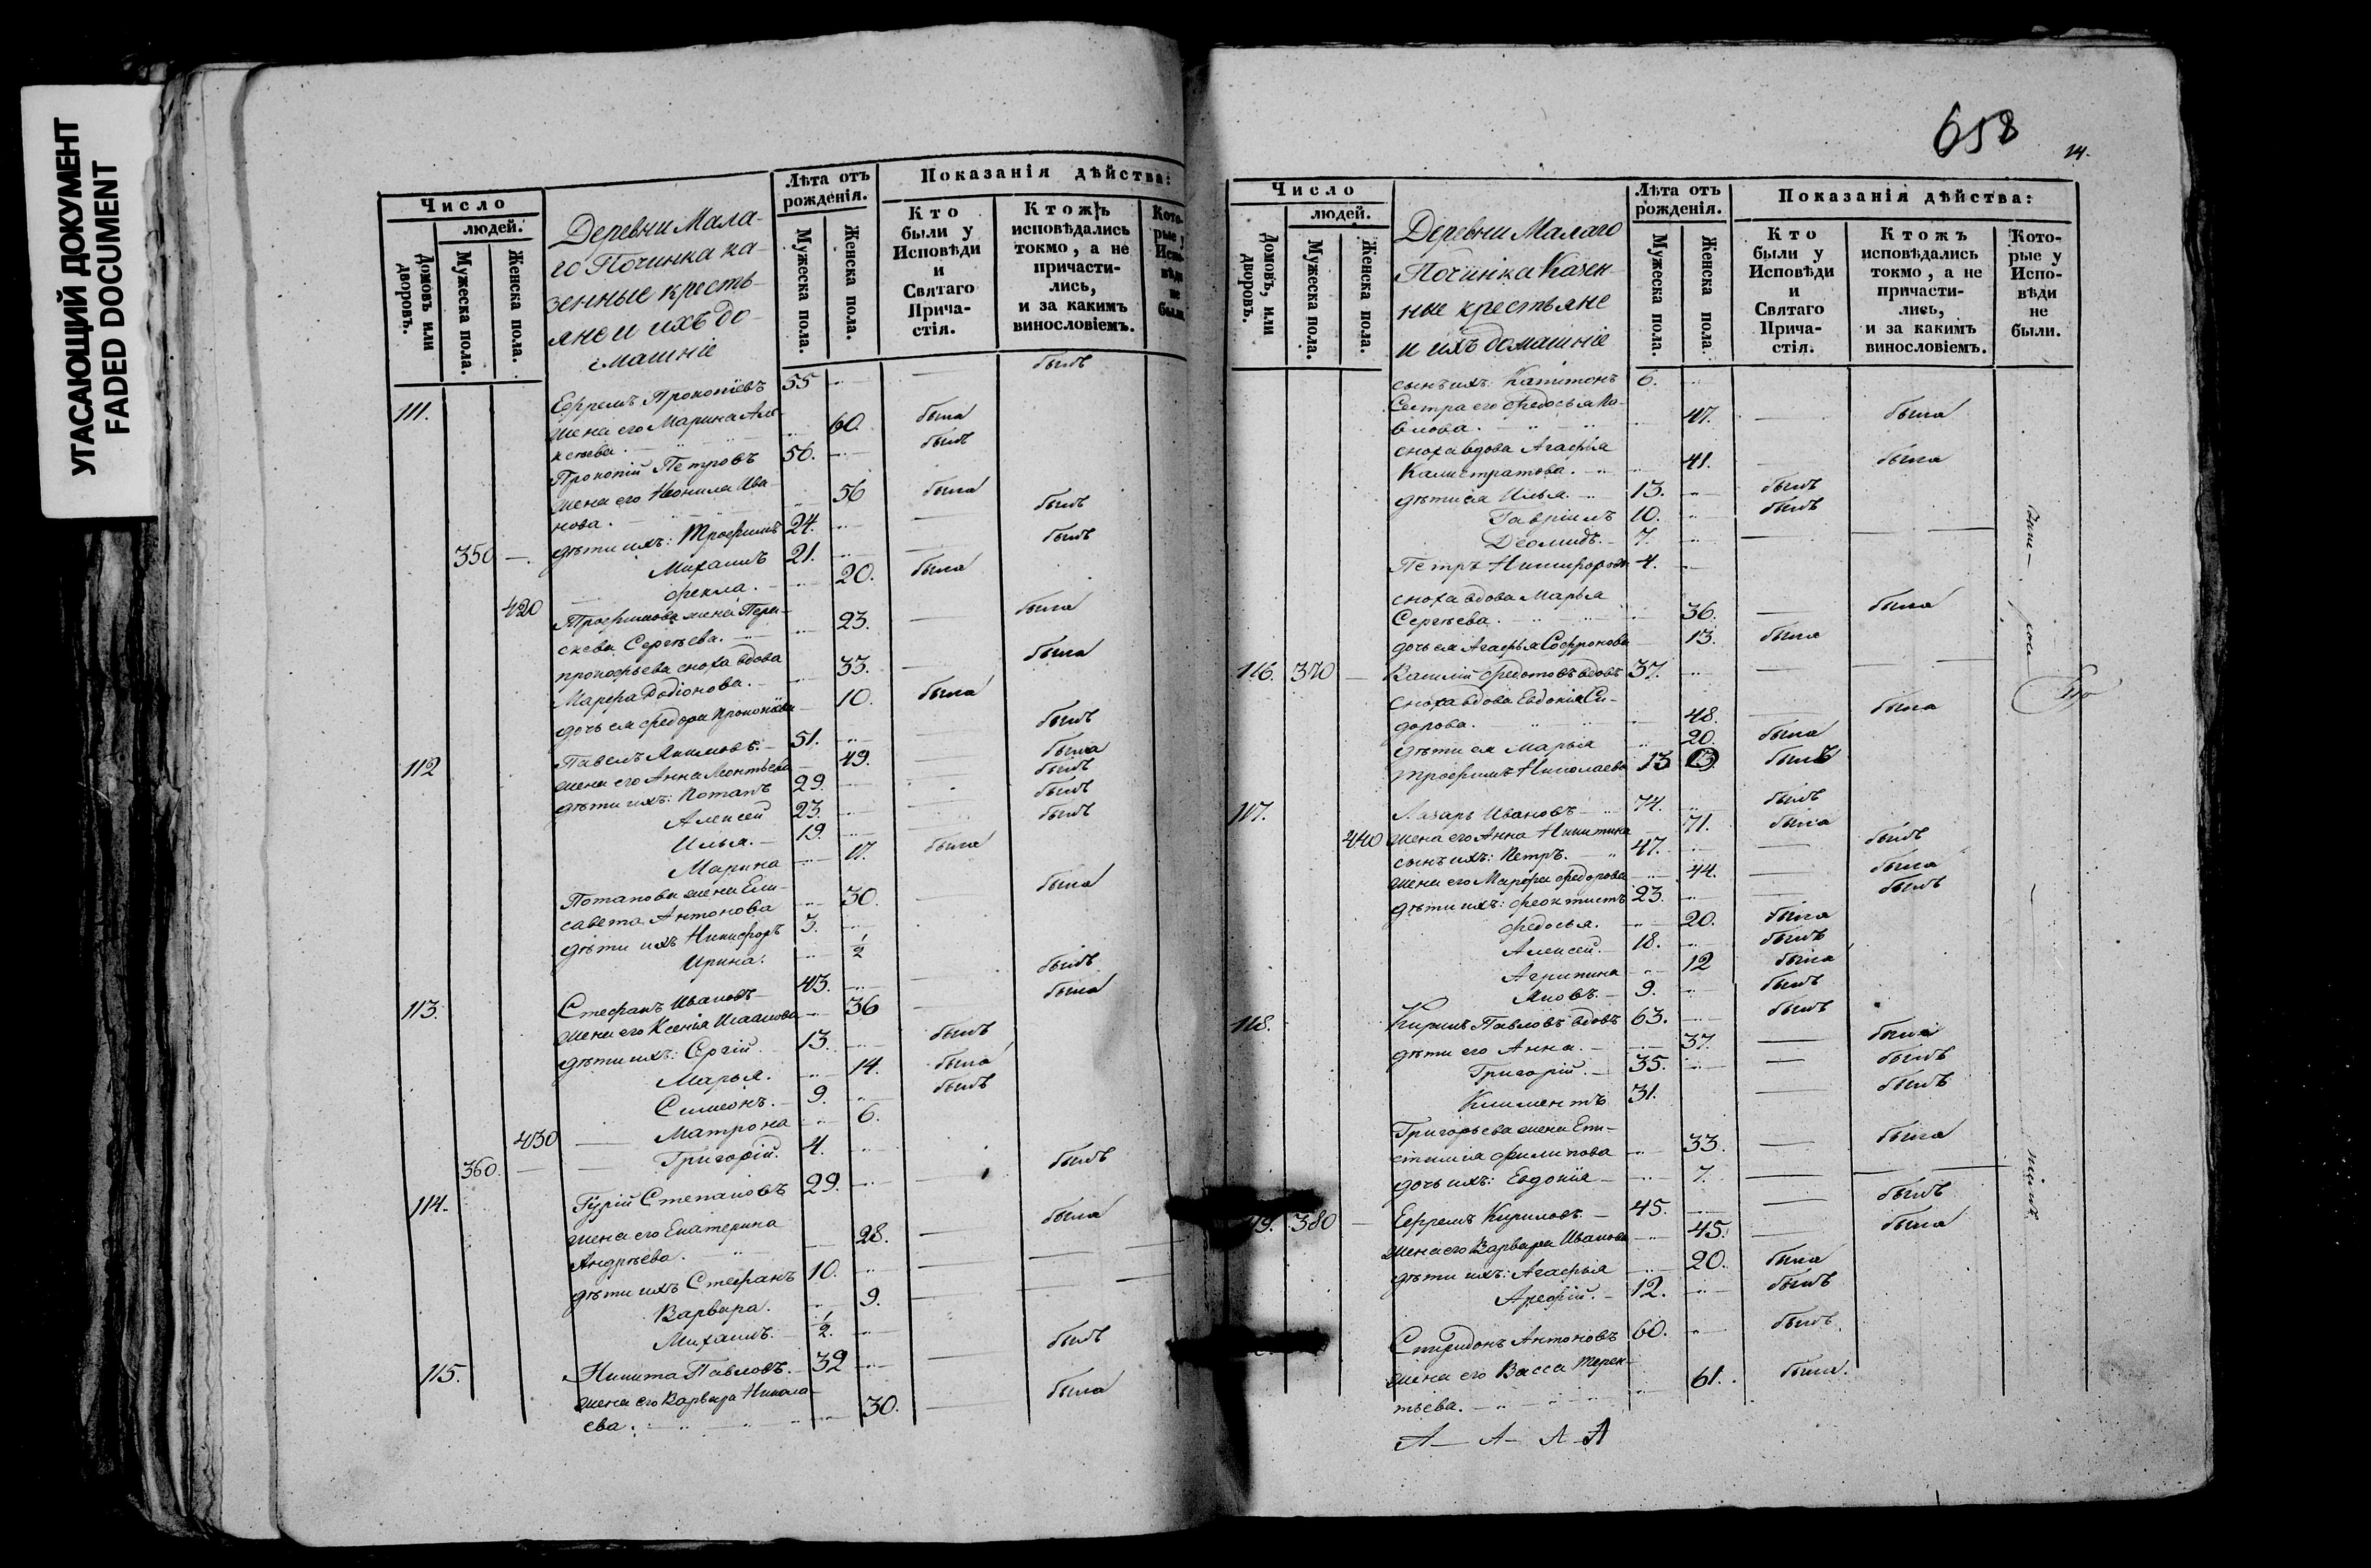 УГАСАЮЩИЙ ДОКУМЕНТ
FADED DOCUMENT
Число
людей.
Домовъ или дворовъ.
Мужеска пола.
Женска пола.
Деревни Мала-
го Починка ка-
зенные кресть-
яне и ихъ до-
машніе
Лѣта отъ рожденія.
Мужеска пола.
Женска пола.
Показанія дѣйства:
Кто были у Исповѣди и Святаго Прича-стія.
Ктожъ исповѣдались токмо, а не причасти-лись, и за какимъ винословіемъ.
Кото-рые у Испо-вѣди не были.
111. Ефремъ Прокопіевъ 55 былъ
жена его Марина Але-
ксѣева. 60. была
Прокопій Петровъ 56. былъ
жена его Неонила Ива-
нова. 56 была
дѣти ихъ: Трофимъ 24. былъ
350 Михаилъ 21. былъ
Фекла. 20. была
420 Трофимова жена Пара-
скева Сергѣева. 23. была
прокофьева сноха вдова
Марфа Родіонова. 33. была
дочь ея Федора Прокопіева 10. была
112 Павелъ Якимовъ. 51. былъ
жена его Анна Леонтьева 49. была
дѣти ихъ: Потапъ 29. былъ
Алексей 23. былъ
Илья. 19. былъ
Марина 17. была
Потапова жена Ели-
савета Антонова 30. была
дѣти ихъ Никифоръ 3.
Ирина. 1/2
113. Стефанъ Ивановъ 43. былъ
жена его Ксенія Исаакова 36 была
дѣти ихъ: Сергій 13. былъ
Марья. 14. была
Симеонъ. 9. былъ
430 Матрона 6.
360. Григорій. 4.
114. Гурій Степановъ 29. былъ
жена его Екатерина
Андрѣева. 28. была
дѣти ихъ Стефанъ 10.
Варвара. 9.
Михаилъ. 1/2.
115. Никита Павловъ. 32 былъ
жена его Варвара Никола-
ева. 30. была
658
14.
Число
людей.
Домовъ, или дворовъ.
Мужеска пола.
Женска пола.
Деревни Малаго
Починка Казен-
ные крестьяне
и ихъ домашніе
Лѣта отъ рожденія.
Мужеска пола.
Женска пола.
Показанія дѣйства:
Кто были у Исповѣди и Святаго Прича-стія.
Ктожъ исповѣдались токмо, а не причасти-лись, и за какимъ винословіемъ.
Кото-рые у Испо-вѣди не были.
сынъ ихъ: Капитонъ 6.
Сестра его Федосья Па-
влова. 47. была
сноха вдова Агафія
Калистратова. 41. была
дѣти ея Илья. 13. былъ
Гавріилъ 10. былъ
Деомидъ. 7.
Петръ Никифоровъ 4.
сноха вдова Марья
Сергѣева. 36. была
дочь ея Агафья Софронова 13. была
116. 370 Василій Федотовъ вдовъ 37.
сноха вдова Евдокія Си-
дорова. 48. была
дѣти ея Марья 20. была
Трофимъ Николаевъ 13 былъ
117. Лазарь Ивановъ 74. былъ
440 жена его Анна Никитина 71. была
сынъ ихъ: Петръ. 47. былъ
жена его Марфа Федорова 44. была
дѣти ихъ: Феоктистъ 23. былъ
Федосья. 20. была
Алексей. 18. былъ
Агрипина 12 была
Яковъ. 9. былъ
118. Кирилъ Павловъ вдовъ 63. былъ
дѣти его Анна. 37. была
Григорій. 35. былъ
Климентъ 31. былъ
Григорьева жена Епи-
стимія Филипова 33. была
дочь ихъ: Евдокія 7.
119. 380 Ефремъ Кириловъ. 45. былъ
жена его Варвара Иванова 45. была
дѣти ихъ: Агафья 20. была
Арефій. 12. былъ
Спиридонъ Антоновъ 60. былъ
жена его Васса Терен-
тьева. 61. была.